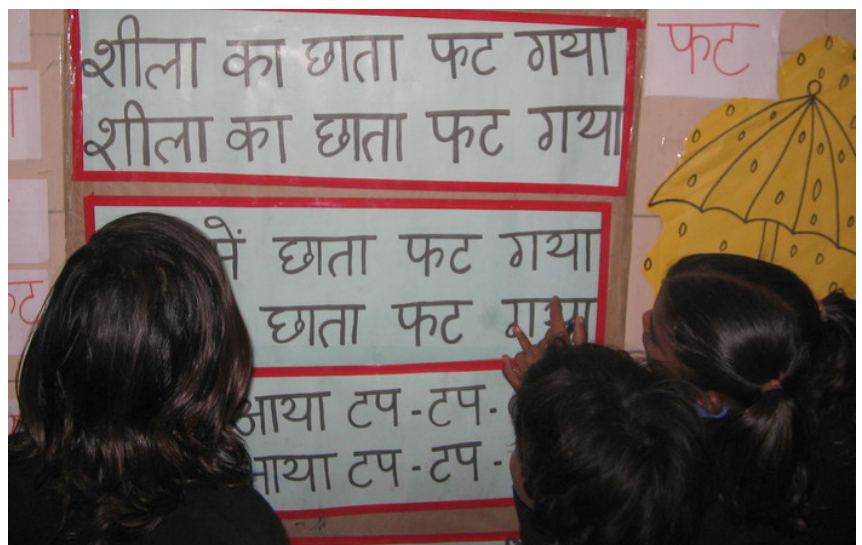 शीला का छाता फट गया
शीला का छाता फट गया
फट
में छाता फट गया
छाता फट गया
आया टप - टप -
आया टप - टप -